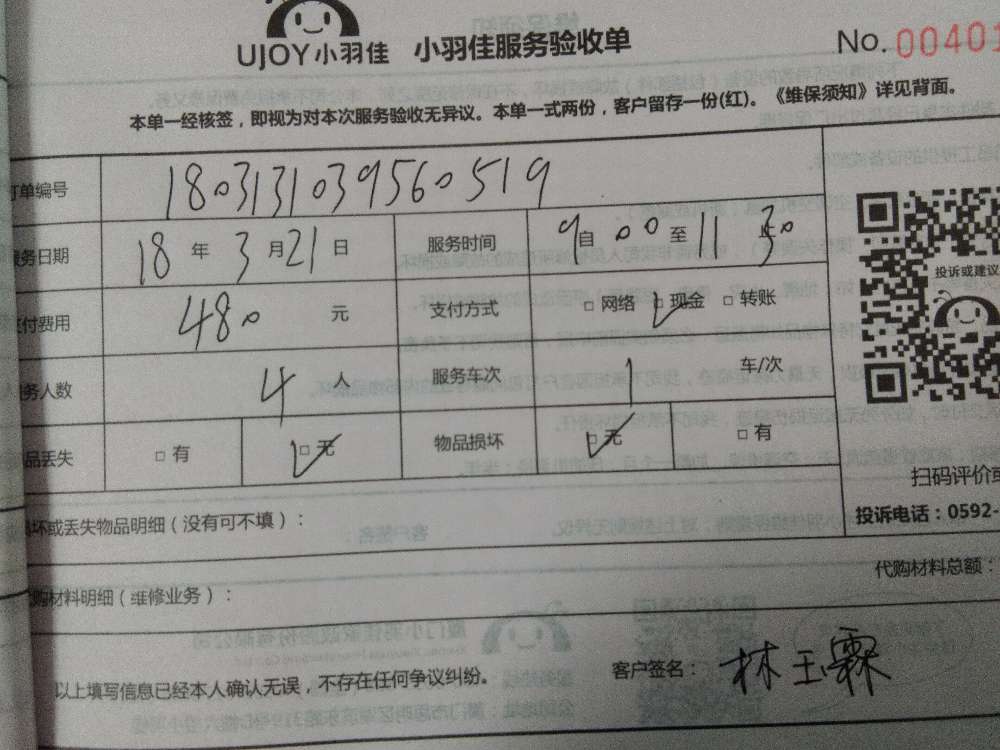 UJOY小羽佳 小羽佳服务验收单 No. 00401
本单一经核签，即视为对本次服务验收无异议。本单一式两份，客户留存一份(红)。《维保须知》详见背面。
订单编号 180313103956 0519
服务日期 18 年 3 月 21 日 服务时间 9 自 00 至 11 30
支付费用 480 元 支付方式 □ 网络 □ 现金 □ 转账
服务人数 4 人 服务车次 1 车/次
物品丢失 □ 有 □ 无 物品损坏 □ 无 □ 有
投诉或建议
扫码评价或
投诉电话：0592-
损坏或丢失物品明细（没有可不填）：
代购材料明细（维修业务）： 代购材料总额：
以上填写信息已经本人确认无误，不存在任何争议纠纷。 客户签名： 林玉霖